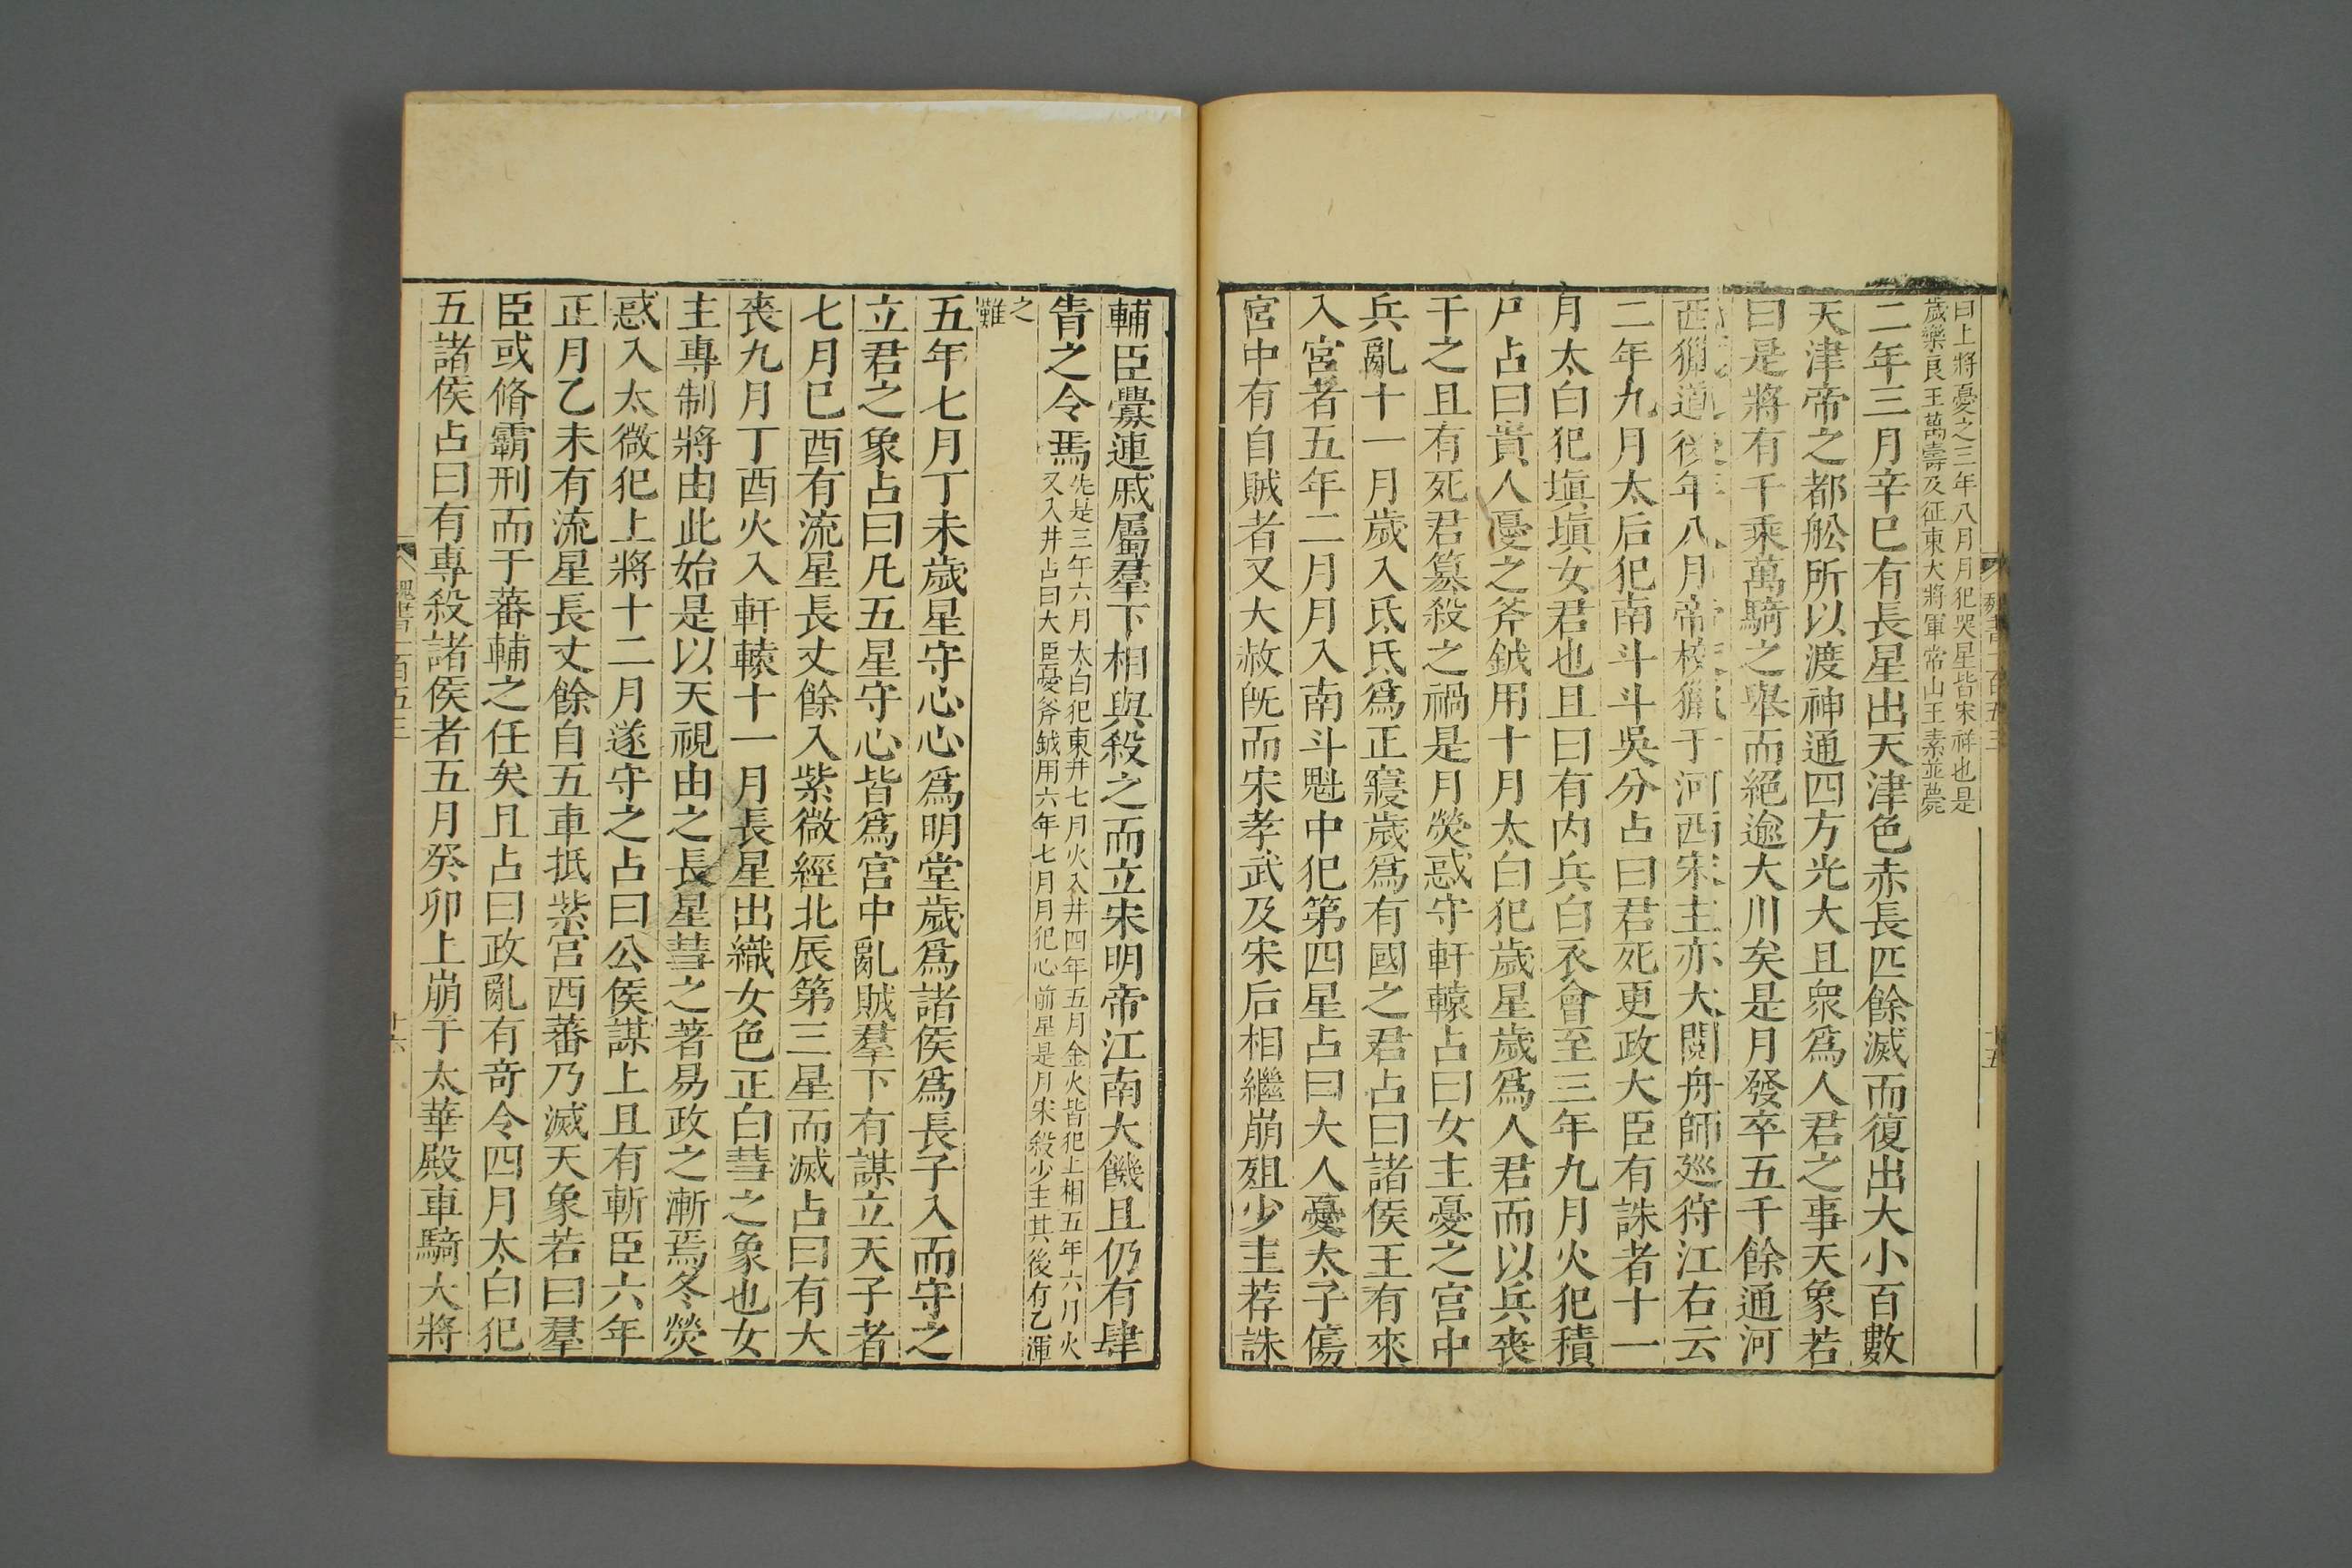 曰上將憂之三年八月月犯哭星皆宋祥也是
歲樂良王萬壽及征東大將軍常山王素並薨
二年三月辛巳有長星出天津色赤長匹餘滅而復出大小百數
天津帝之都船所以渡神通四方光大且衆爲人君之事天象若
曰是將有千乘萬騎之舉而絕逾大川矣是月發卒五千餘通河
西獵道後年八月帝校獵于河西宋主亦大閱舟師廵狩江右云
二年九月太后犯南斗斗吳分占曰君死更政大臣有誅者十一
月太白犯塡塡女君也且曰有内兵白衣會至三年九月火犯積
尸占曰貴人憂之斧鉞用十月太白犯歲星歲爲人君而以兵喪
干之且有死君簒殺之禍是月熒惑守軒轅占曰女主憂之宮中
兵亂十一月歲入氐氐爲正寢歲爲有國之君占曰諸侯王有來
入宮者五年二月月入南斗魁中犯第四星占曰大人憂太子傷
宮中有自賊者又大赦旣而宋孝武及宋后相繼崩殂少主荐誅
輔臣釁連戚屬羣下相與殺之而立宋明帝江南大饑且仍有肆
眚之令焉先是三年六月太白犯東井七月火入井四年五月金火皆犯上相五年六月火
又入井占曰大臣憂斧鉞用六年七月月犯心前星是月宋殺少主其後有乙渾
之
難
五年七月丁未歲星守心心爲明堂歲爲諸侯爲長子入而守之
立君之象占曰凡五星守心皆爲宮中亂賊羣下有謀立天子者
七月巳酉有流星長丈餘入紫微經北辰第三星而滅占曰有大
喪九月丁酉火入軒轅十一月長星出織女色正白彗之象也女
主專制將由此始是以天視由之長星彗之著易政之漸焉冬熒
惑入太微犯上將十二月遂守之占曰公侯謀上且有斬臣六年
正月乙未有流星長丈餘自五車抵紫宮西蕃乃滅天象若曰羣
臣或脩霸刑而干蕃輔之任矣且占曰政亂有奇令四月太白犯
五諸侯占曰有專殺諸侯者五月癸卯上崩于太華殿車騎大將
魏書一百五三
十五
魏書一百五三
十六